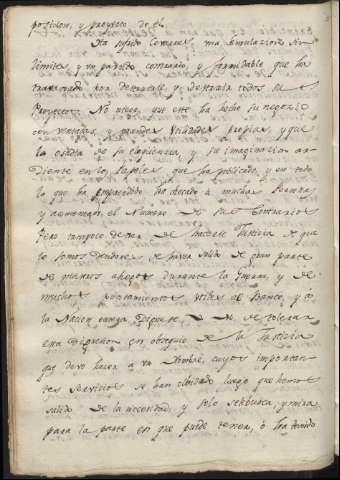 posicion, y proyecto de el
Ha sufrido Cabarrus una emulacion sin
limites, y un partido contrario, y formidable que ha
trastornado
Proyectos. No niego, que este ha hecho su negocio
con ventajas, y grandes utilidades propias, y que
la de su eloquencia, y su imaginacion ar
diente en los papeles que ha publicado, y en todo
lo que ha emprehendido ha chocado a muchas Personas
y aumentado el Numero de sus Contrarios
Pero tampoco dexare de hacerle Justicia de que
le somos deudores de haver salido de gran parte
de nuestros ahogos durante la Guerra, y de
muchos pensamientos utiles al Banco, y a
la Nacion entera. Dignese V. M. de tolerar
esta digresion en obsequio de la Justicia
que devo hacer a un Hombre, cuyos importan
tes servicios se han olvidado luego que hemos
salido de la necesidad, y solo se busca, y mira
para la parte en que puede tener, o ha tenido